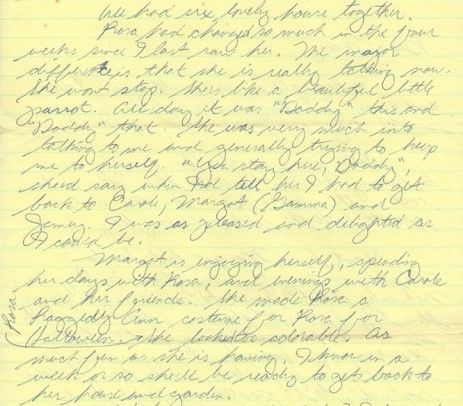 We had six lovely hours together.
Rosa had changed so much in the four
weeks since I last saw her. The major
difference is, that she is really talking now.
She wont stop. She's like a beautiful little
parrot. All day it was "Daddy" this and
"Daddy" that. She was very much into
talking to me and generally trying to keep
me to herself. "Stay here, Daddy",
she'd say when I'd tell her I had to get
back to Carole, Margot (Gamma) and
Jamey. I was as pleased and delighted as
I could be.
Margot is enjoying herself, spending
her days with Rosa, and evenings with Carole
and her friends. She made Rosa a
Raggedly Ann costume for Rosa for
Halloween. She looked adorable. As
much fun as she is having, I know in a
week or so she'll be ready to get back to
her house and garden.
Rosa